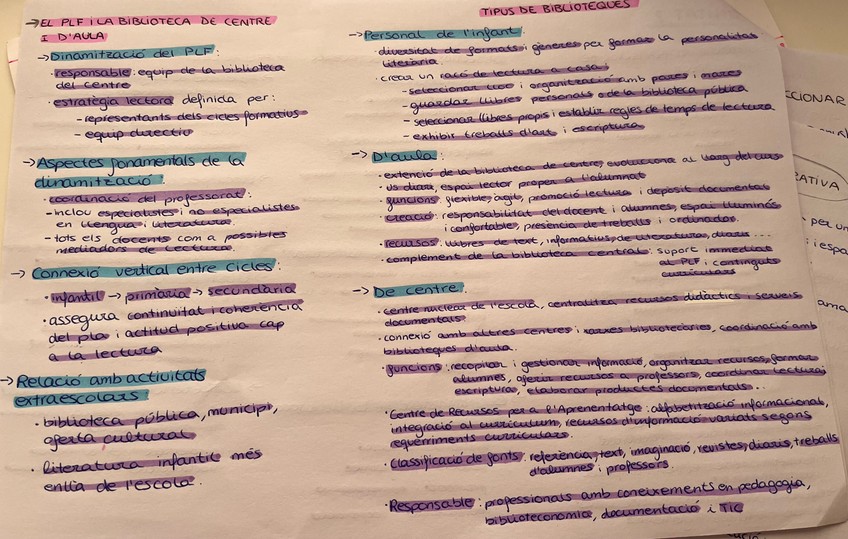 → EL PLF I LA BIBLIOTECA DE CENTRE
I D'AULA
→ Dinamització del PLF:
· responsable: equip de la biblioteca
del centre
· estratègia lectora definida per:
- representants dels cicles formatius
- equip directiu
→ Aspectes fonamentals de la
dinamització:
· coordinació del professorat:
- inclou especialistes i no especialistes
en llengua i literatura
- tots els docents com a possibles
mediadors de lectura.
→ Connexió vertical entre cicles:
· infantil → primària → secundària
· assegura continuïtat i coherència
del pla i actitud positiva cap
a la lectura
→ Relació amb activitats
extraescolars:
· biblioteca pública, municipi,
oferta cultural
· literatura infantil més
enllà de l'escola.
TIPUS DE BIBLIOTEQUES
→ Personal de l'infant:
· diversitat de formats i gèneres per formar la personalitat
literària
· crear un racó de lectura a casa:
- seleccionar lloc i organització amb pares i mares
- guardar llibres personals o de la biblioteca pública
- seleccionar llibres propis i establir regles de temps de lectura
- exhibir treballs d'art i escriptura
→ D'aula:
· extenció de la biblioteca de centre, evoluciona al llarg del curs
· ús diari, espai lector proper a l'alumnat
· funcions: flexible, àgil, promoció lectura i depòsit documental
· creació: responsabilitat del docent i alumnes, espai lluminós
i confortable, presència de treballs i ordinador.
· recursos: llibres de text, informatius, de literatura, diaris...
· complement de la biblioteca central: suport immediat
al PLF i continguts
curriculars
→ De centre:
· centre nuclear de l'escola, centralitza recursos didàctics i serveis
documentals.
· connexió amb altres centres i xarxes bibliotecàries, coordinació amb
biblioteques d'aula.
· funcions: recopilar i gestionar informació, organitzar recursos, formar
alumnes, oferir recursos a professors, coordinar lectura i
escriptura, elaborar productes documentals...
· Centre de Recursos per a l'Aprenentatge: alfabetització informacional,
integració al currículum, recursos d'informació variats segons
requeriments curriculars.
· Classificació de fonts: referència, text, imaginació, revistes, diaris, treballs
d'alumnes i professors.
· Responsable: professionals amb coneixements en pedagogia,
biblioteconomia, documentació i TIC
CCIONAR
ATIVA
per un
i espa
ama